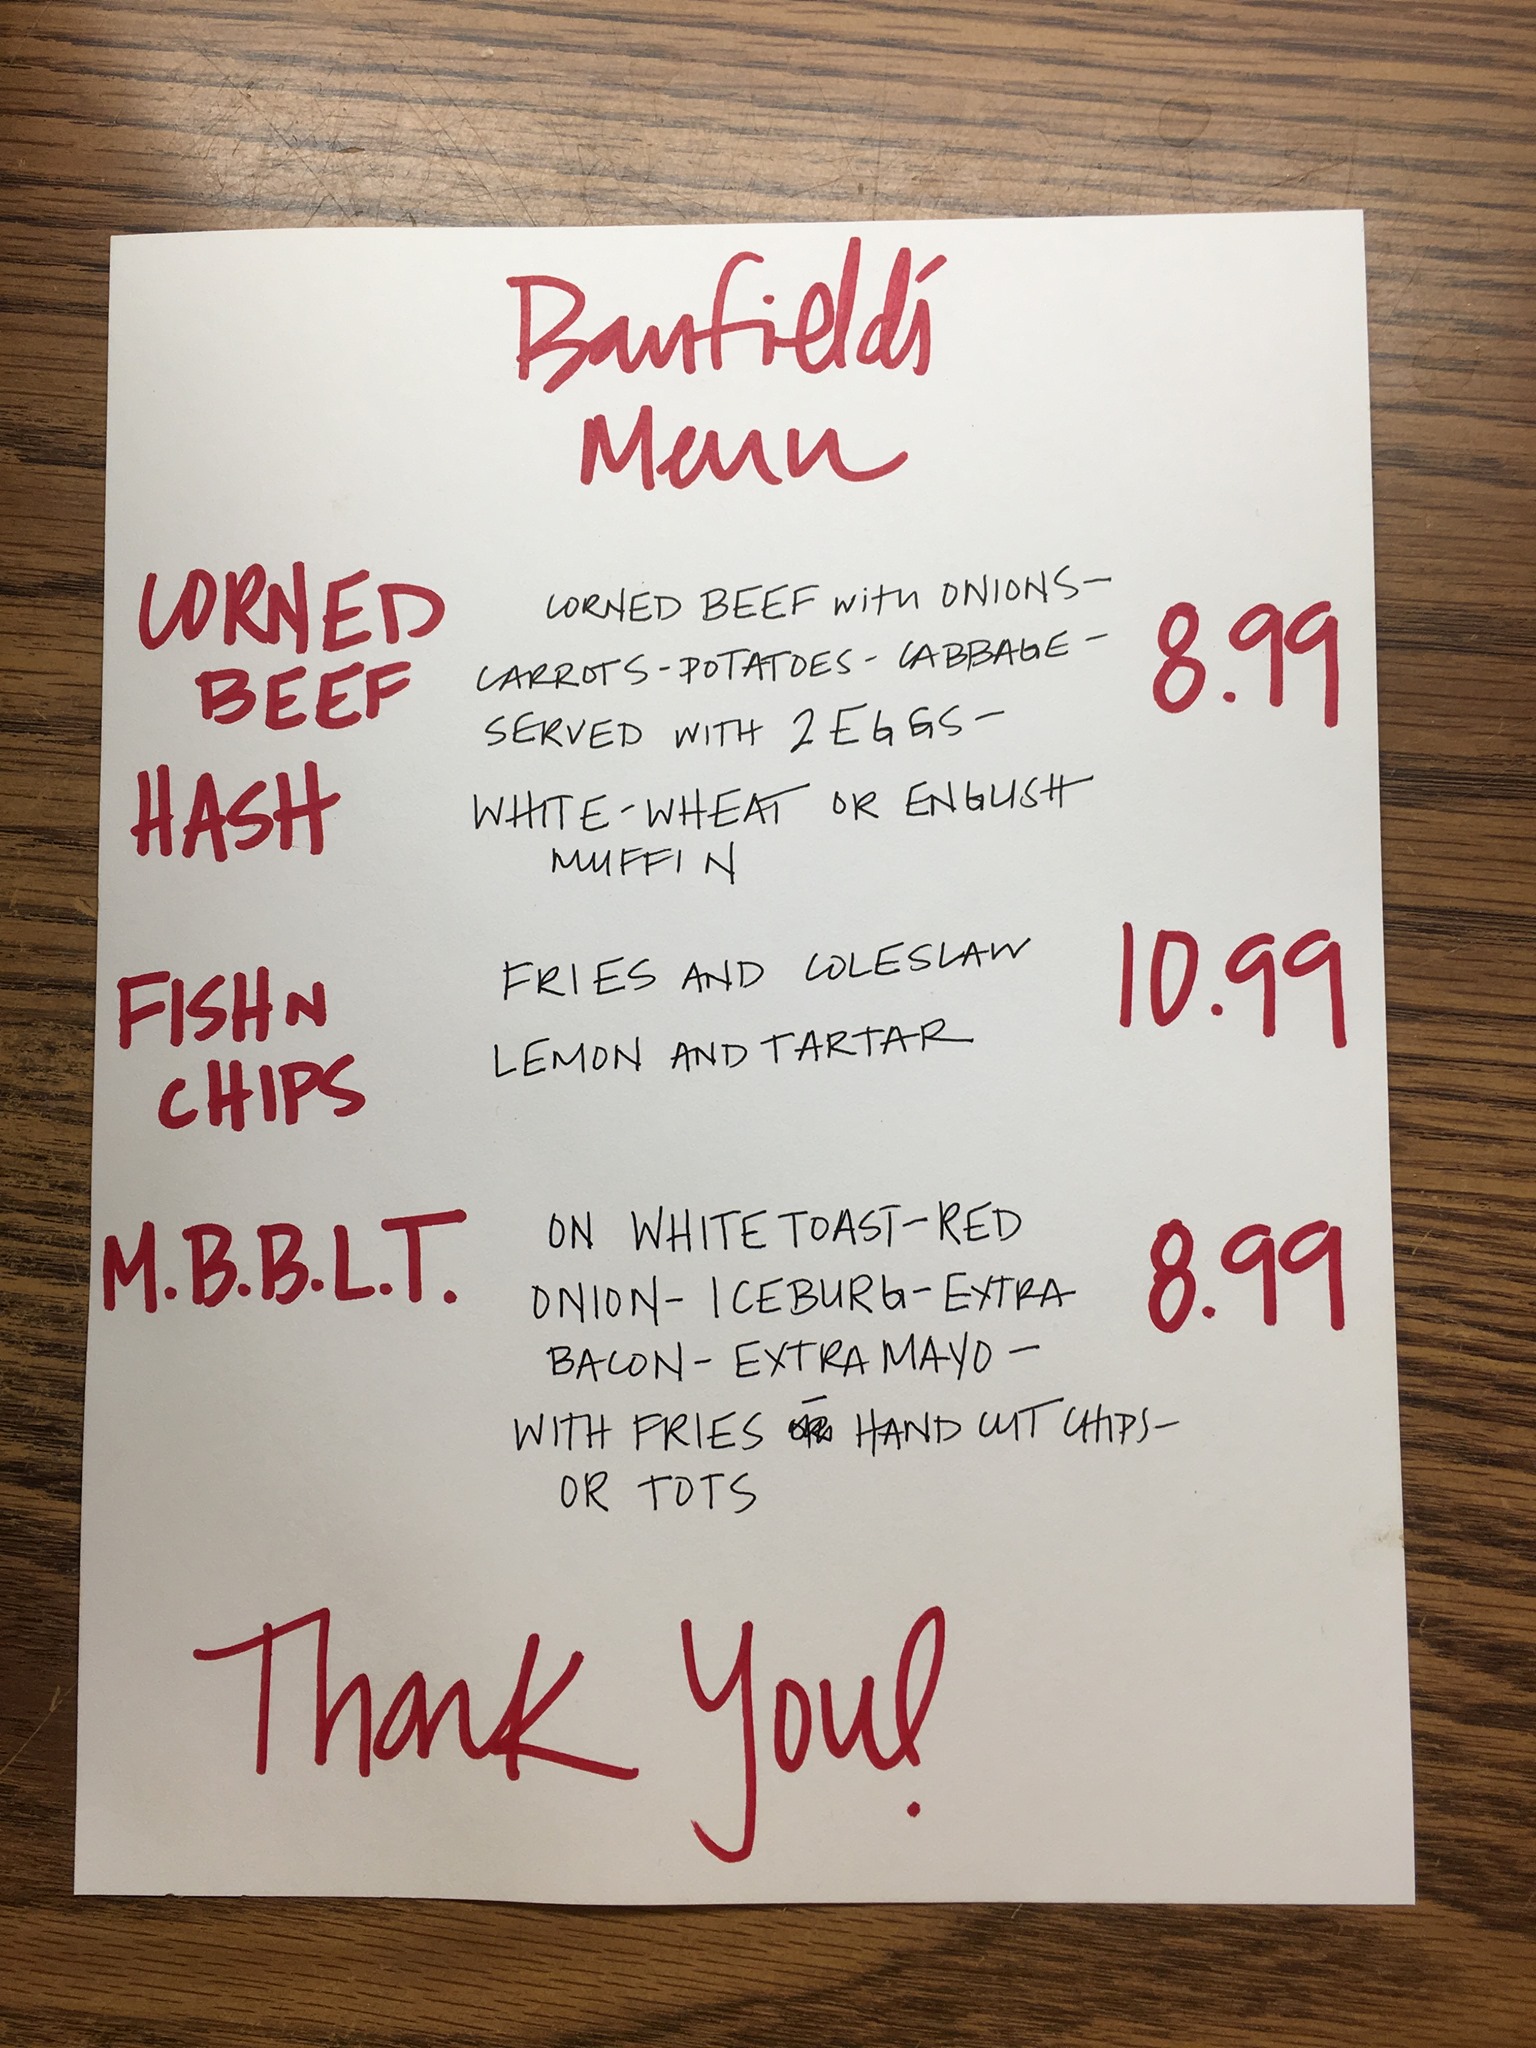 Banfield's
Menu
CORNED
BEEF
HASH
CORNED BEEF with ONIONS-
CARROTS-POTATOES- CABBAGE-
SERVED WITH 2 EGGS-
WHITE-WHEAT OR ENGLISH
MUFFIN
8.99
FISH N
CHIPS
FRIES AND COLESLAW
LEMON AND TARTAR
10.99
M.B.B.L.T.
ON WHITE TOAST-RED
ONION- ICEBURG-EXTRA
BACON- EXTRA MAYO-
WITH FRIES - HAND CUT CHIPS-
OR TOTS
8.99
Thank You!